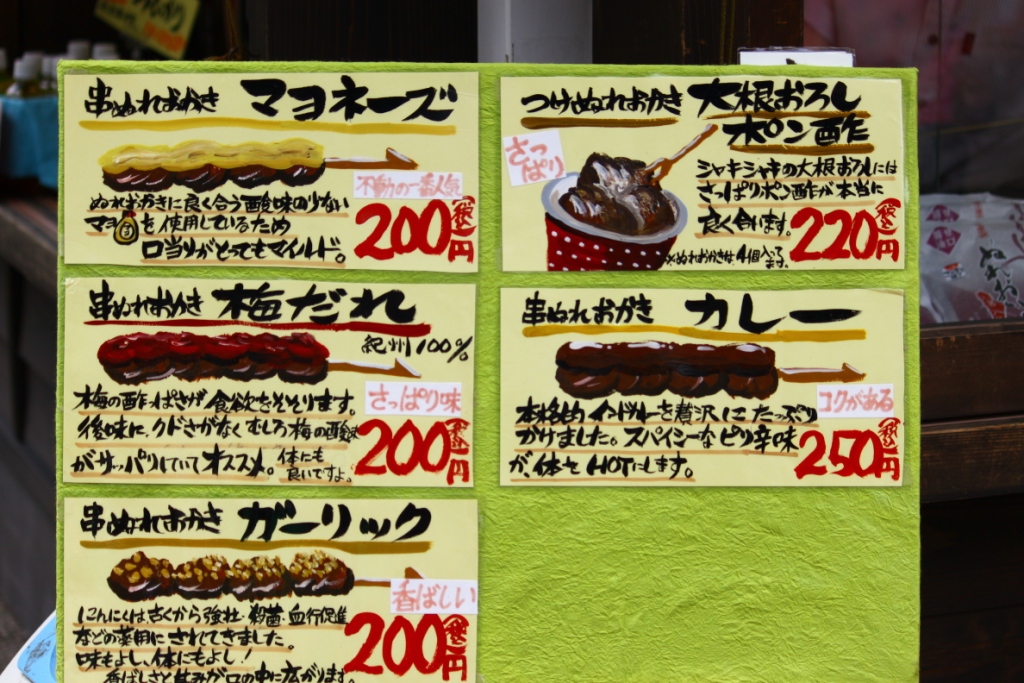 串ぬれおかき マヨネーズ
不動の一番人気
ぬれおかきに良く合う酸味の少ない
マヨを使用しているため
口当りがとってもマイルド。
200円(税込)
つけぬれおかき 大根おろし
ポン酢
さっぱり
シャキシャキの大根おろしには
さっぱりポン酢が本当に
良く合います。
※ぬれおかきは4個入ります。
220円(税込)
串ぬれおかき 梅だれ
紀州100%
さっぱり味
梅の酢っぱさが食欲をそそります。
後味に、クドさがなくむしろ梅の酸味
がサッパリしていてオススメ。体にも
良いですよ。
200円(税込)
串ぬれおかき カレー
コクがある
本格的インドカレーを贅沢にたっぷり
かけました。スパイシーなピリ辛味
が、体をHOTにします。
250円(税込)
串ぬれおかき ガーリック
香ばしい
にんにくは古くから強壮・殺菌・血行促進
などの薬用にされてきました。
味もよし、体にもよし!
香ばしさと甘みが口の中に広がります。
200円(税込)